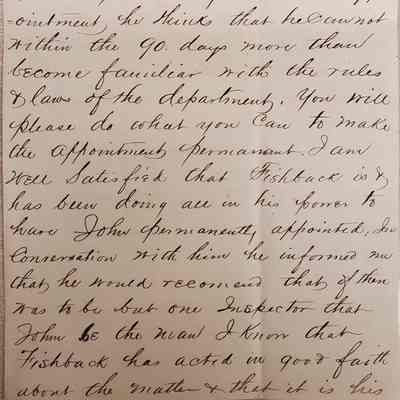 =ointment, he thinks that he can not
within the 90. days more than
become familiar with the rules
& laws of the department. You will
please do what you can to make
the appointment permanant. I am
well satisfied that Fishback is &
has been doing all in his power to
have John permanently appointed, In
conversation with him he informed me
that he would recomend that if there
was to be but one Inspector that
John be the man I know that
Fishback has acted in good faith
about the matter & that it is his